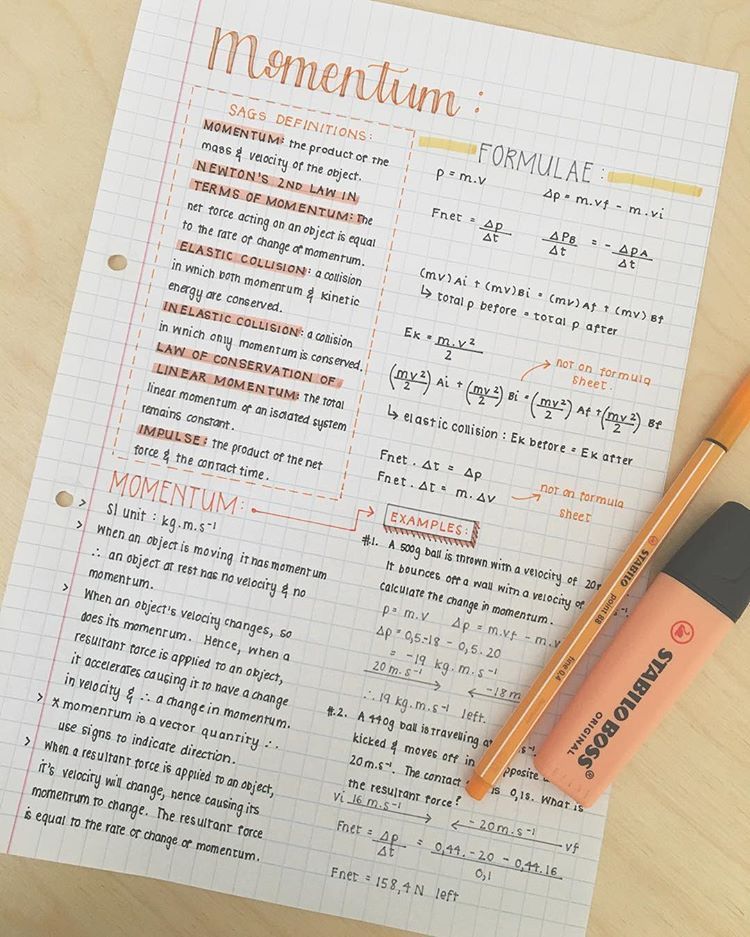 Momentum:
SAGS DEFINITIONS:
MOMENTUM: the product of the
mass & velocity of the object.
NEWTON'S 2ND LAW IN
TERMS OF MOMENTUM: The
net force acting on an object is equal
to the rate of change of momentum.
ELASTIC COLLISION: a collision
in which both momentum & kinetic
energy are conserved.
INELASTIC COLLISION: a collision
in which only momentum is conserved.
LAW OF CONSERVATION OF
LINEAR MOMENTUM: the total
linear momentum of an isolated system
remains constant.
IMPULSE: the product of the net
force & the contact time.
FORMULAE:
p = m.v
Δp = m.vf - m.vi
Fnet = Δp/Δt
ΔPB/Δt = - ΔpA/Δt
(mv)Ai + (mv)Bi = (mv)Af + (mv)Bf
↳ total p before = total p after
Ek = m.v²/2
(mv²/2) Ai + (mv²/2) Bi = (mv²/2) Af + (mv²/2) Bf
not on formula
sheet.
↳ elastic collision: Ek before = Ek after
Fnet . Δt = Δp
Fnet . Δt = m.Δv
not on formula
sheet
MOMENTUM:
> SI unit : kg.m.s⁻¹
> When an object is moving it has momentum
∴ an object at rest has no velocity & no
momentum.
> When an object's velocity changes, so
does its momentum. Hence, when a
resultant force is applied to an object,
it accelerates causing it to have a change
in velocity & ∴ a change in momentum.
> x momentum is a vector quantity ∴
use signs to indicate direction.
> When a resultant force is applied to an object,
it's velocity will change, hence causing its
momentum to change. The resultant force
is equal to the rate of change of momentum.
EXAMPLES:
#1. A 500g ball is thrown with a velocity of
It bounces off a wall with a velocity of
calculate the change in momentum.
p = m.v Δp = m.vf - m.v
Δp = 0,5.-18 - 0,5.20
= -19 kg.m.s⁻¹
20m.s⁻¹ -18m
∴ 19 kg.m.s⁻¹ left.
#2. A 440g ball is travelling
kicked & moves off in
20m.s⁻¹. The contact is 0,1s. What is
the resultant force?
vi 16m.s⁻¹
-20m.s⁻¹ vf
Fnet = Δp/Δt = 0,44.-20 - 0,44.16/0,1
Fnet = 158,4N left
STABILO point 88 fine 0,4
STABILO BOSS
ORIGINAL